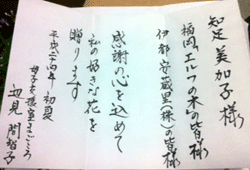 知足 美加子様
福岡エルフの木の皆様
伊都安蔵里(株)の皆様
感謝の心を込めて
私の好きな花を
贈ります
平成二十四年 初夏
母子支援室まごころ
辺見 問智子